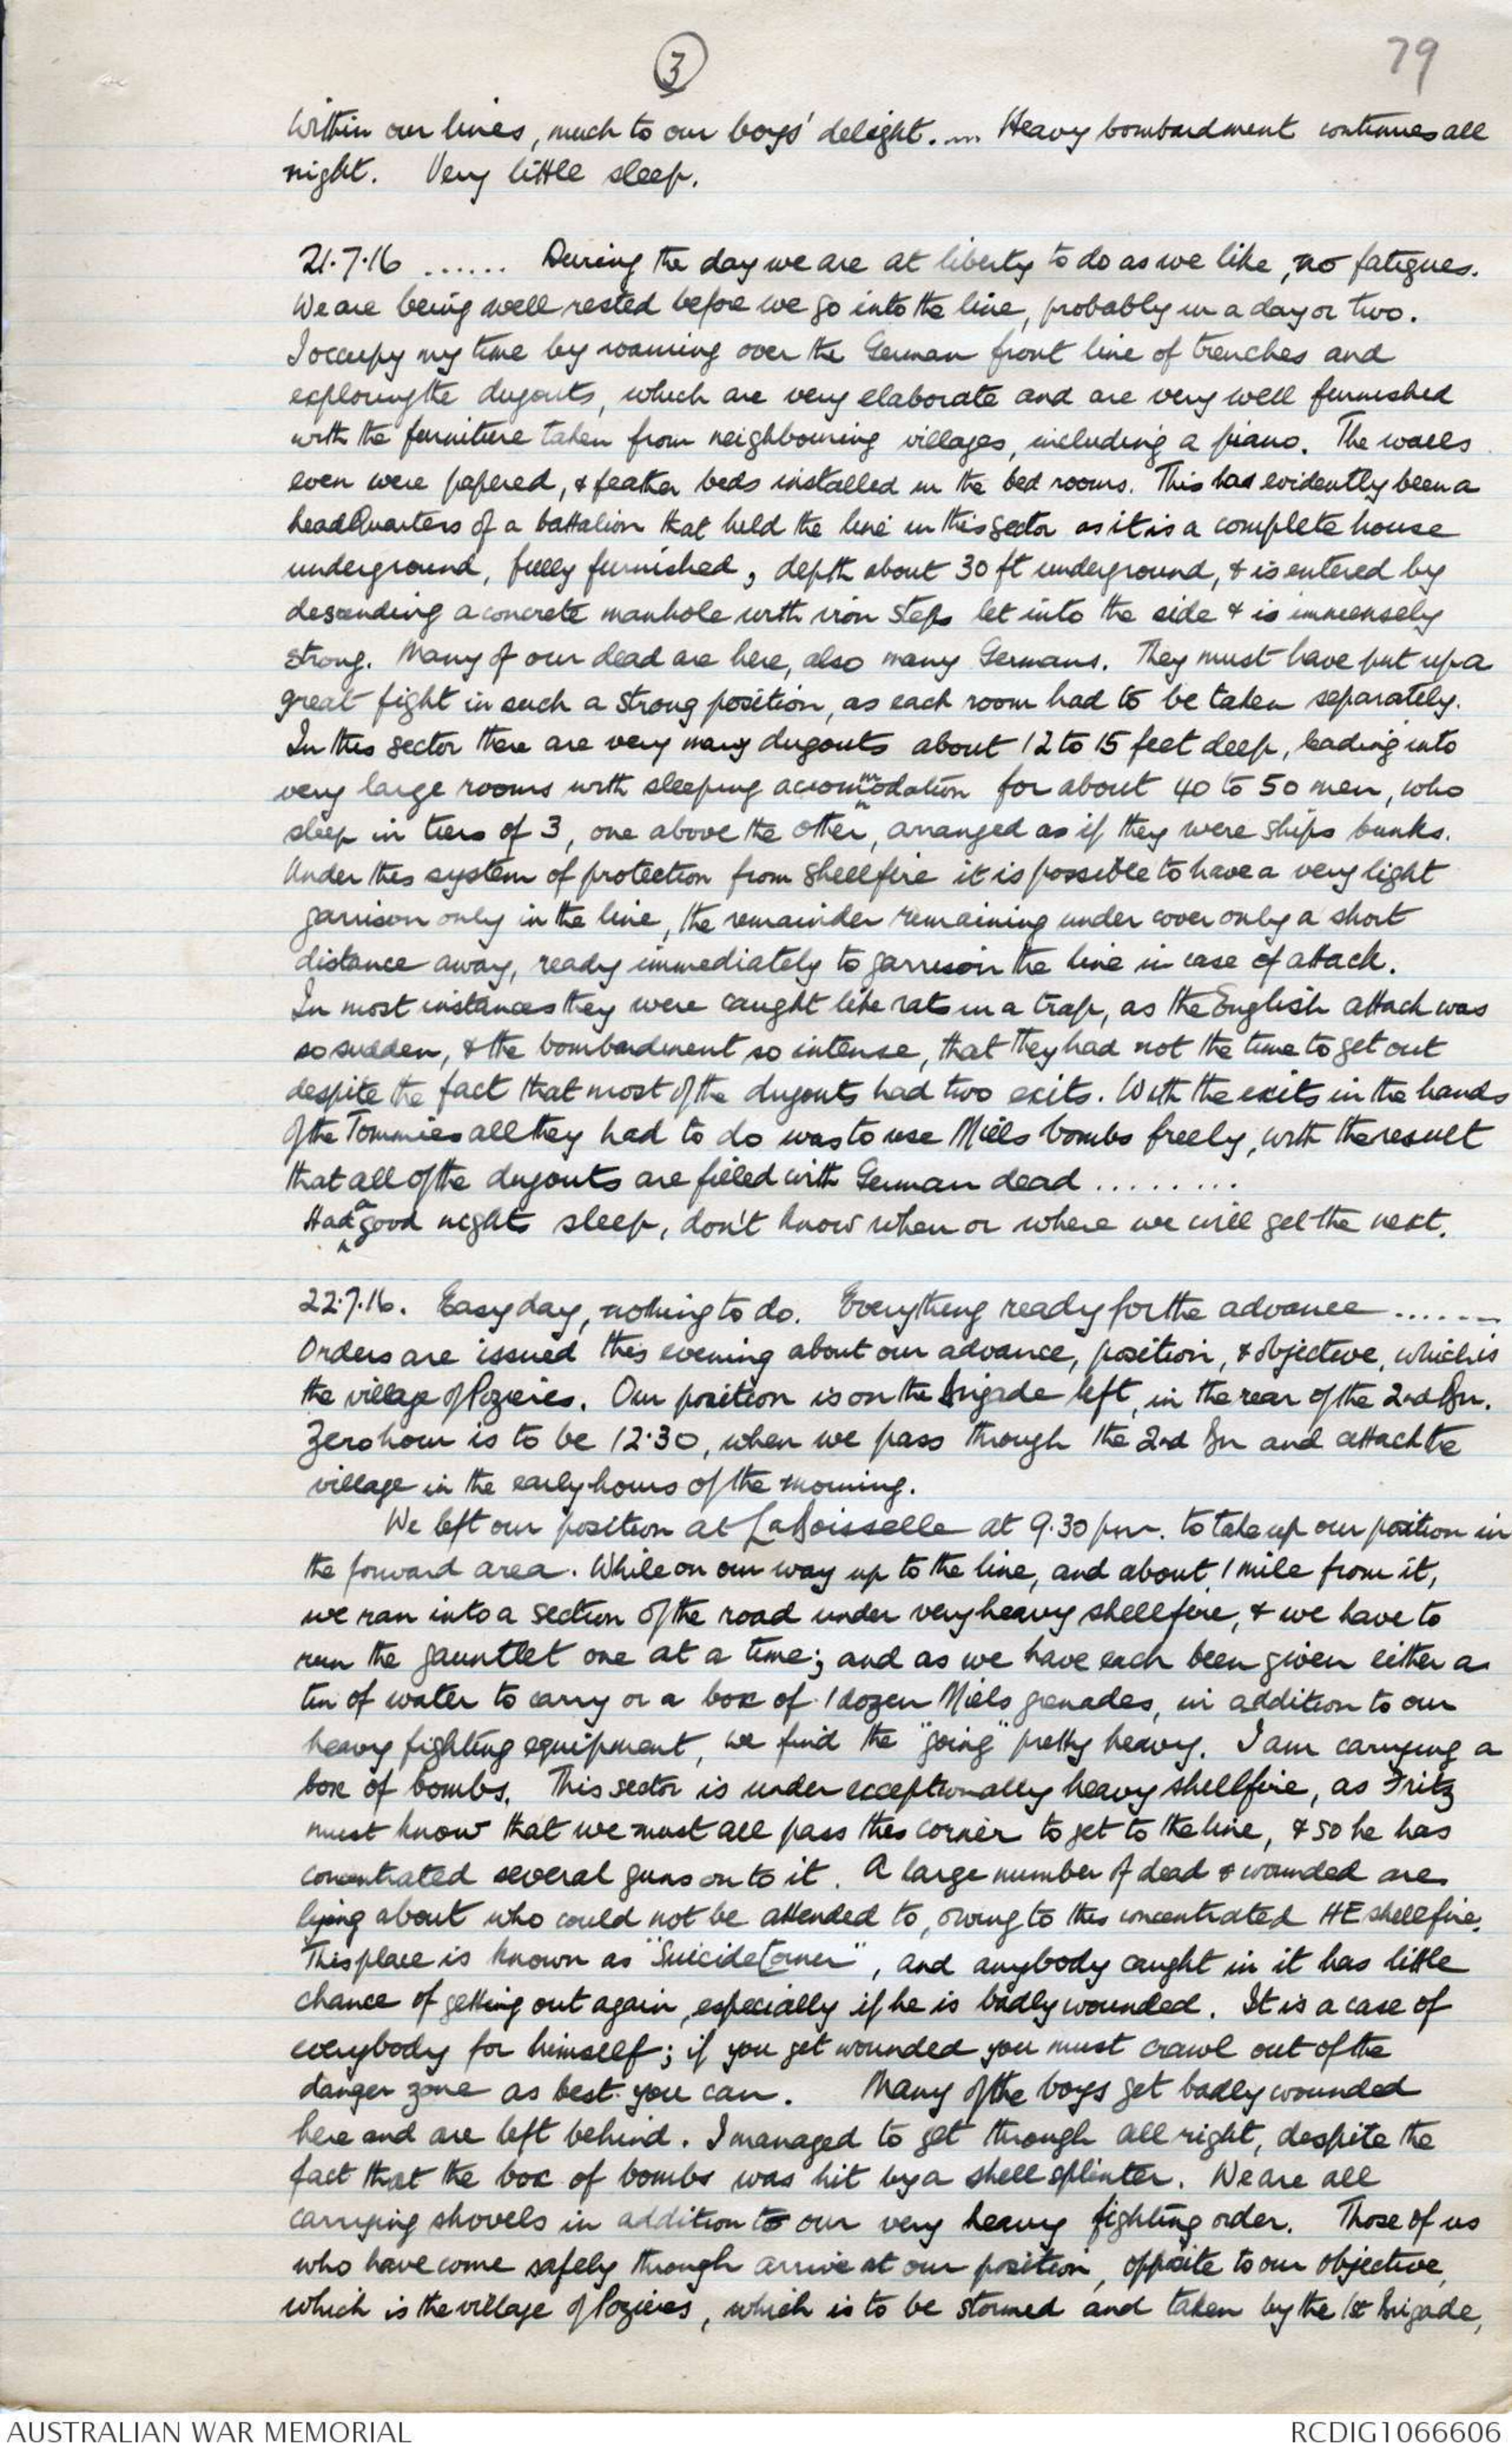 3
79
within our lines, much to our boys' delight. .... Heavy bombardment continues all
night. Very little sleep.
21.7.16 ...... During the day we are at liberty to do as we like, no fatigues.
We are being well rested before we go into the line, probably in a day or two.
I occupy my time by roaming over the German front line of trenches and
exploring the dugouts, which are very elaborate and are very well furnished
with the furniture taken from neighbouring villages, including a piano. The walls
even were papered, & feather beds installed in the bed rooms. This has evidently been a
headquarters of a battalion that held the line in this sector as it is a complete house
underground, fully furnished, depth about 30 ft underground, & is entered by
descending a concrete manhole with iron steps let into the side & is immensely
strong. Many of our dead are here, also many Germans. They must have put up a
great fight in such a strong position, as each room had to be taken separately.
In this sector there are very many dugouts about 12 to 15 feet deep, leading into
very large rooms with sleeping accommodation for about 40 to 50 men, who
sleep in tiers of 3, one above the other, arranged as if they were ships bunks.
Under this system of protection from shellfire it is possible to have a very light
garrison only in the line, the remainder remaining under cover only a short
distance away, ready immediately to garrison the line in case of attack.
In most instances they were caught like rats in a trap, as the English attack was
so sudden, & the bombardment so intense, that they had not the time to get out
despite the fact that most of the dugouts had two exits. With the exits in the hands
of the Tommies all they had to do was to use Mills bombs freely, with the result
that all of the dugouts are filled with German dead .........
Had a good nights sleep, don't know when or where we will get the next.
22.7.16. Easy day, nothing to do. Everything ready for the advance .......
Orders are issued this evening about our advance, position, & objective, which is
the village of Pozieres. Our position is on the Brigade left, in the rear of the 2nd Bn.
Zero hour is to be 12.30, when we pass through the 2nd Bn and attack the
village in the early hours of the morning.
We left our position at La Boisselle at 9.30 pm. to take up our position in
the forward area. While on our way up to the line, and about 1 mile from it,
we ran into a section of the road under very heavy shellfire, & we have to
run the gauntlet one at a time; and as we have each been given either a
tin of water to carry or a box of 1 dozen Mills grenades, in addition to our
heavy fighting equipment, we find the "going" pretty heavy. I am carrying a
box of bombs. This sector is under exceptionally heavy shellfire, as Fritz
must know that we must all pass this corner to get to the line, & so he has
concentrated several guns on to it. A large number of dead & wounded are
lying about who could not be attended to, owing to this concentrated HE shellfire.
This place is known as "Suicide Corner", and anybody caught in it has little
chance of getting out again, especially if he is badly wounded. It is a case of
everybody for himself; if you get wounded you must crawl out of the
danger zone as best you can. Many of the boys get badly wounded
here and are left behind. I managed to get through all right, despite the
fact that the box of bombs was hit by a shell splinter. We are all
carrying shovels in addition to our very heavy fighting order. Those of us
who have come safely through arrive at our position, opposite to our objective,
which is the village of Pozieres, which is to be stormed and taken by the 1st Brigade,
AUSTRALIAN WAR MEMORIAL
RCDIG1066606